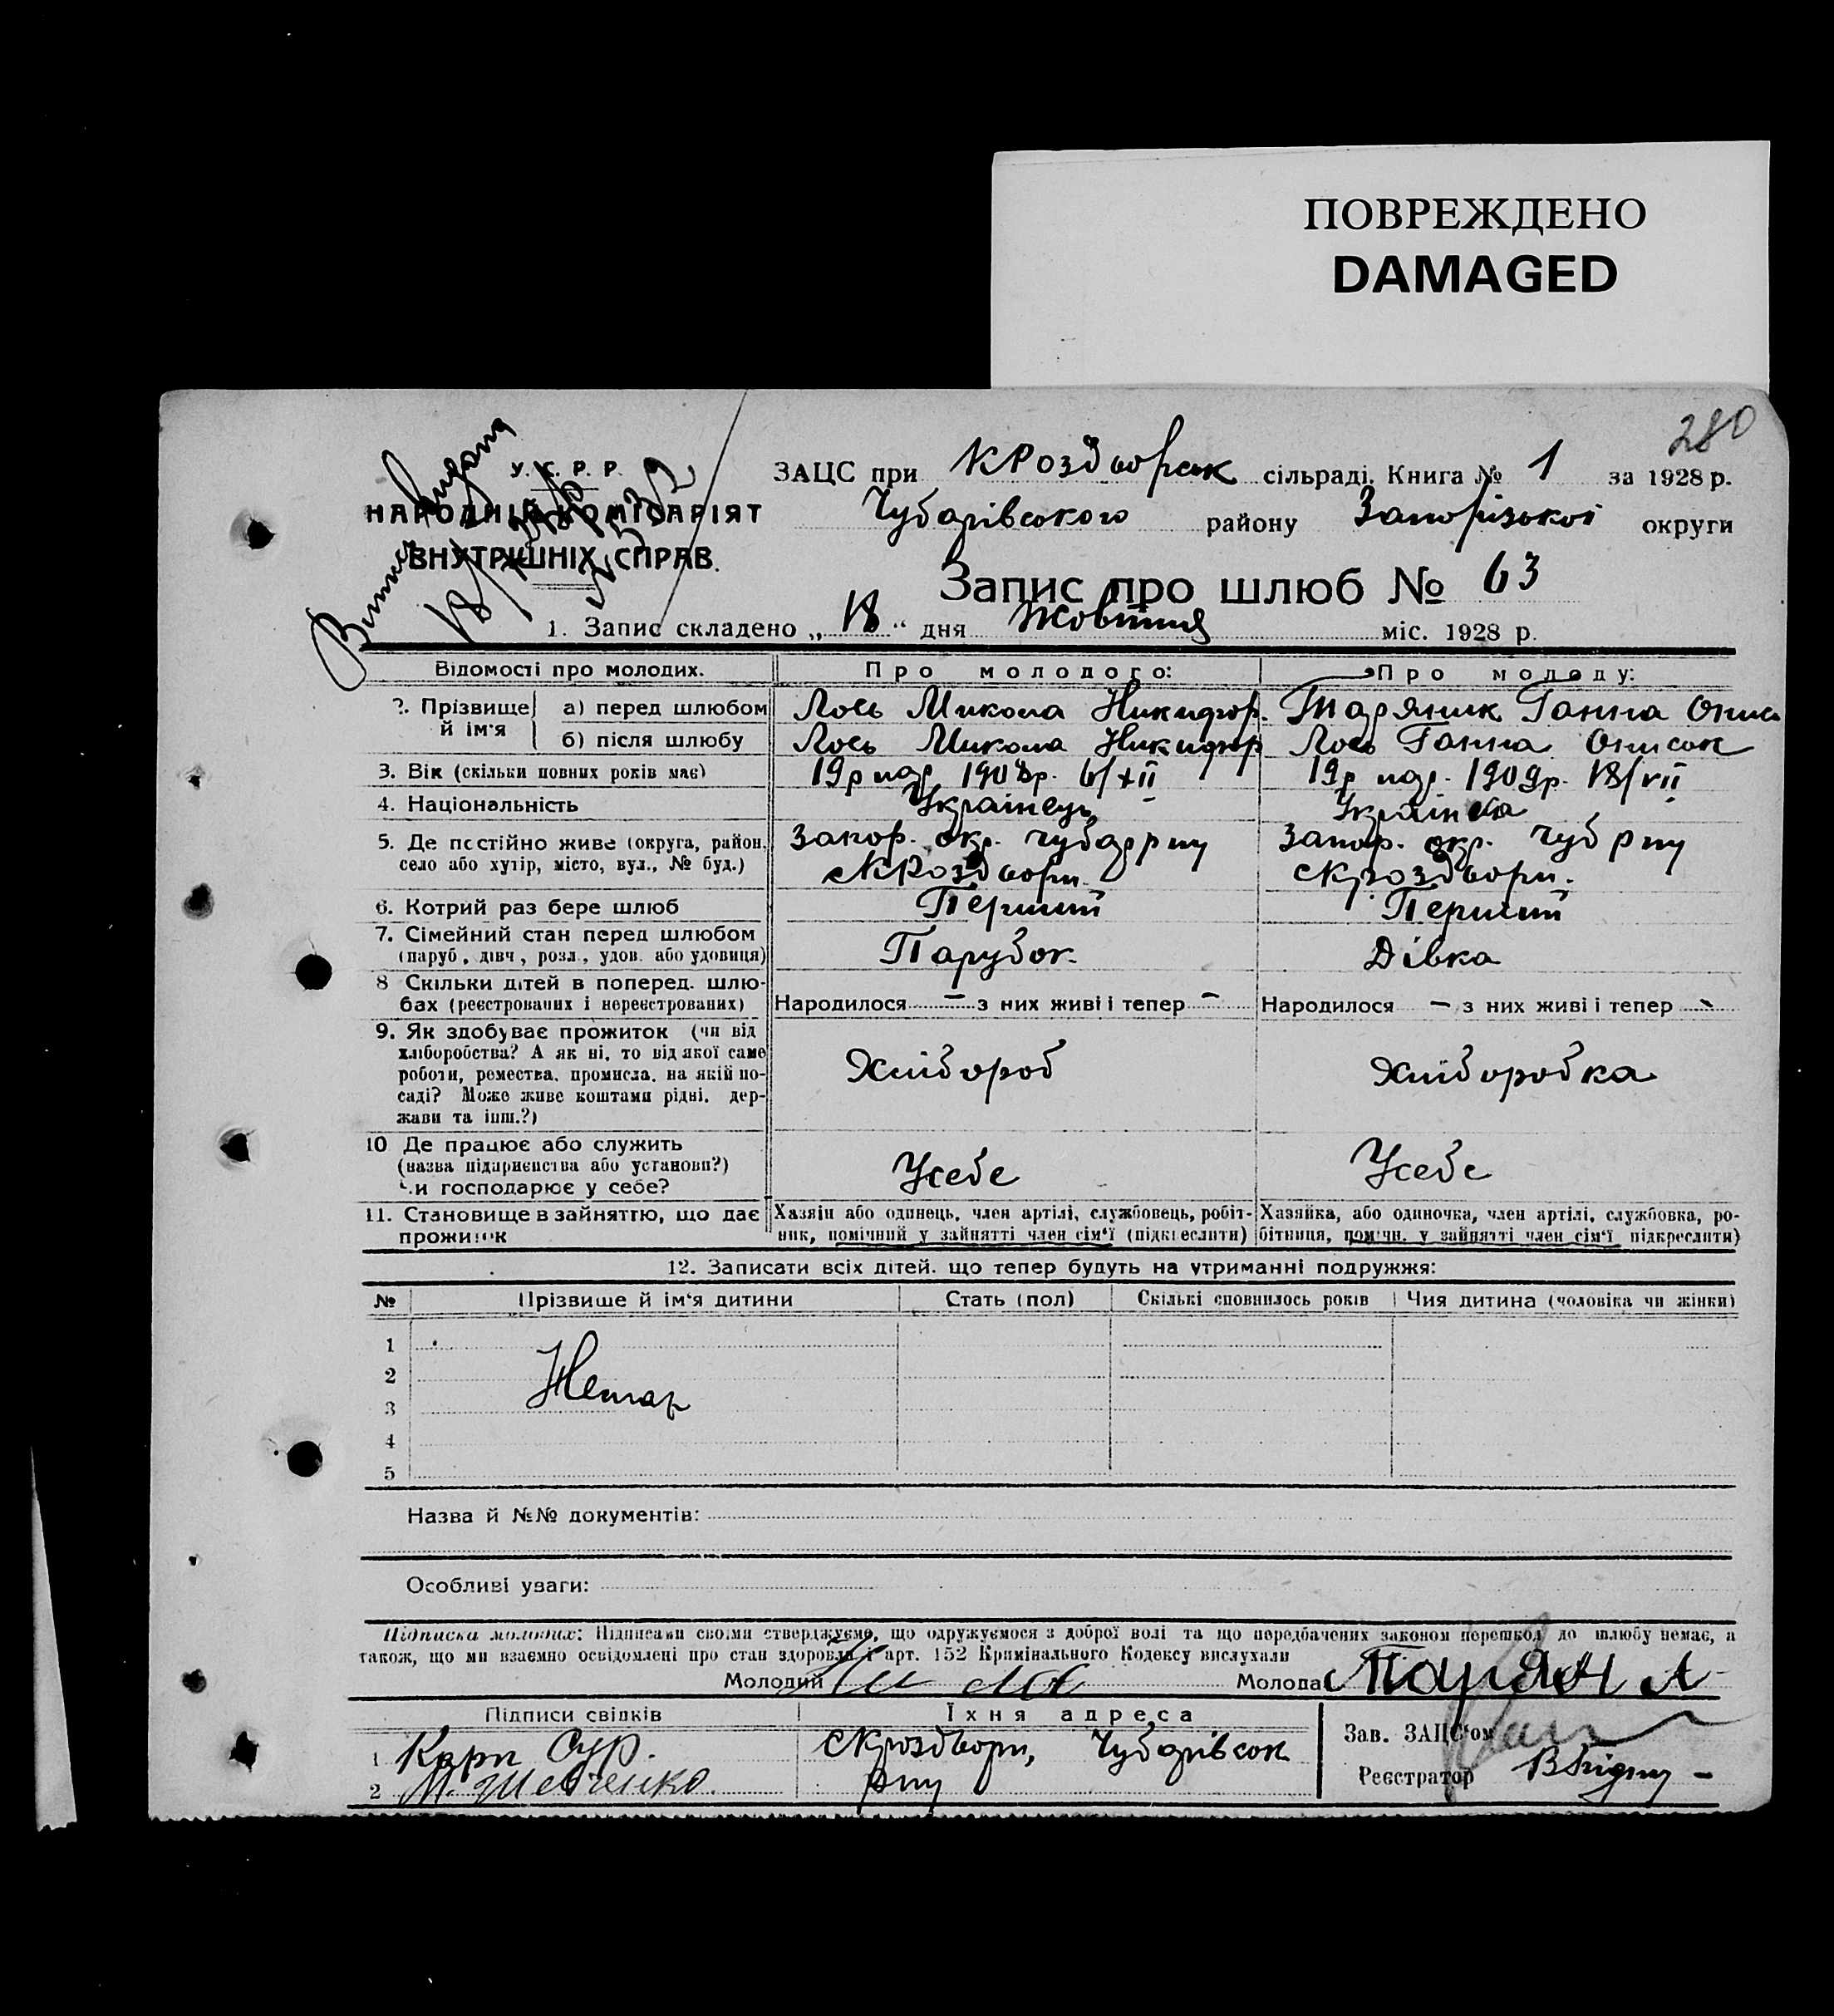 ПОВРЕЖДЕНО
DAMAGED
280
У. С. Р. Р.
НАРОДНІЙ КОМІСАРІЯТ
ВНУТРІШНІХ СПРАВ.
ЗАЦС при КРоздорськ сільраді. Книга № 1 за 1928 р.
Чубарівського району Запорізької округи
Запис про шлюб № 63
1. Запис складено „ 18 “ дня Жовтня міс. 1928 р.
Відомості про молодих. Про молодого: Про молоду:
2. Прізвище й ім'я а) перед шлюбом Лось Микола Никифор. Таряник Ганна Онис
б) після шлюбу Лось Микола Никифор Лось Ганна Онисок
3. Вік (скільки повних років має) 19р нар 1908р. 6/XII 19р нар. 1909р. 18/VII
4. Національність Українець Українка
5. Де постійно живе (округа, район, Запор. окр. Чубар рну Запор. окр. Чуб рну
село або хутір, місто, вул., № буд.) с КРоздори. с Кроздори.
6. Котрий раз бере шлюб Перший Перший
7. Сімейний стан перед шлюбом Парубок. Дівка
(паруб., дівч., розл., удов. або удовиця)
8 Скільки дітей в поперед. шлю-
бах (реєстрованих і нереєстрованих) Народилося — з них живі і тепер — Народилося — з них живі і тепер —
9. Як здобуває прожиток (чи від
хліборобства? А як ні, то від якої саме
роботи, ремества, промисла, на якій по- Хлібороб Хліборобка
саді? Може живе коштами рідні, дер-
жави та інш.?)
10 Де працює або служить
(назва підприємства або установи?) Усебе Усебе
Чи господарює у себе?
11. Становище в зайняттю, що дає Хазяїн або одинець, член артілі, службовець, робіт- Хазяйка, або одиночка, член артілі, службовка, ро-
прожиток ник, помічний у зайнятті член сім'ї (підкреслити) бітниця, помічн. у зайнятті член сім'ї підкреслити)
12. Записати всіх дітей, що тепер будуть на утриманні подружжя:
№ Прізвище й ім'я дитини Стать (пол) Скількі сповнилось років Чия дитина (чоловіка чи жінки)
1
2 Немає
3
4
5
Назва й №№ документів:
Особливі уваги:
Підписка молодих: Підписами своїми стверджуємо, що одружуємося з доброї волі та що передбачених законом перешкод до шлюбу немає, а
також, що ми взаємно освідомлені про стан здоровля і арт. 152 Кримінального Кодексу вислухали
Молодий Молода Тарян А
Підписи свідків Їхня адреса Зав. ЗАЦС'ом
1 Карп Сур. с Кроздори, Чубарівсок
2 М. Шевченко рну Реєстратор